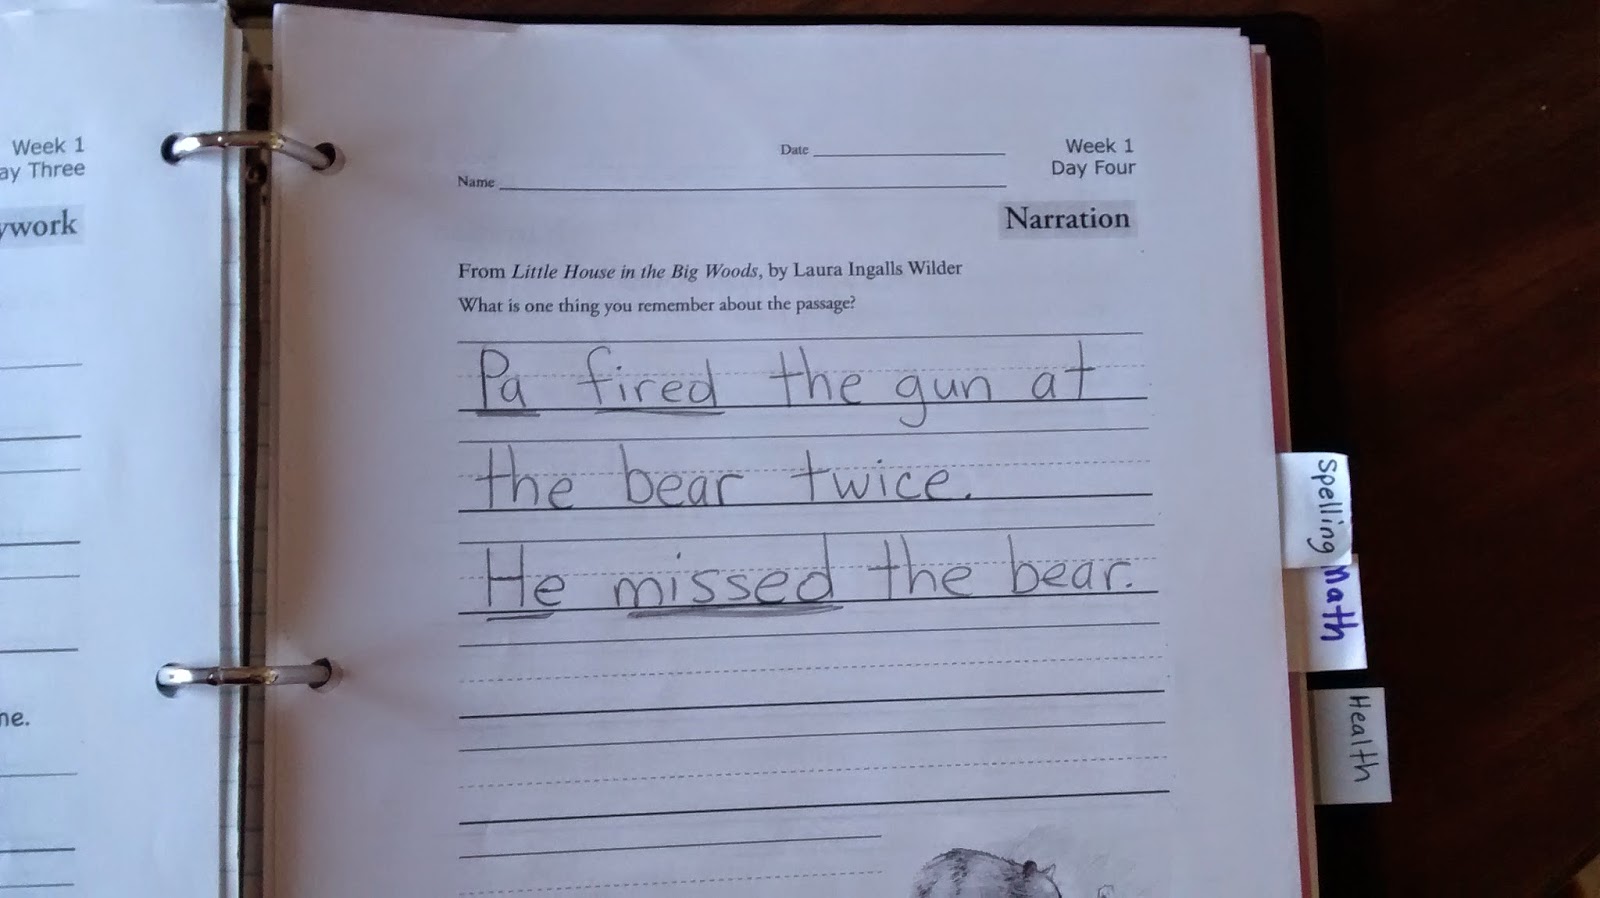 Week 1
ay Three
ywork
ne.
Date
Week 1
Day Four
Name
Narration
From Little House in the Big Woods, by Laura Ingalls Wilder
What is one thing you remember about the passage?
Pa fired the gun at
the bear twice.
He missed the bear.
Spelling
math
Health